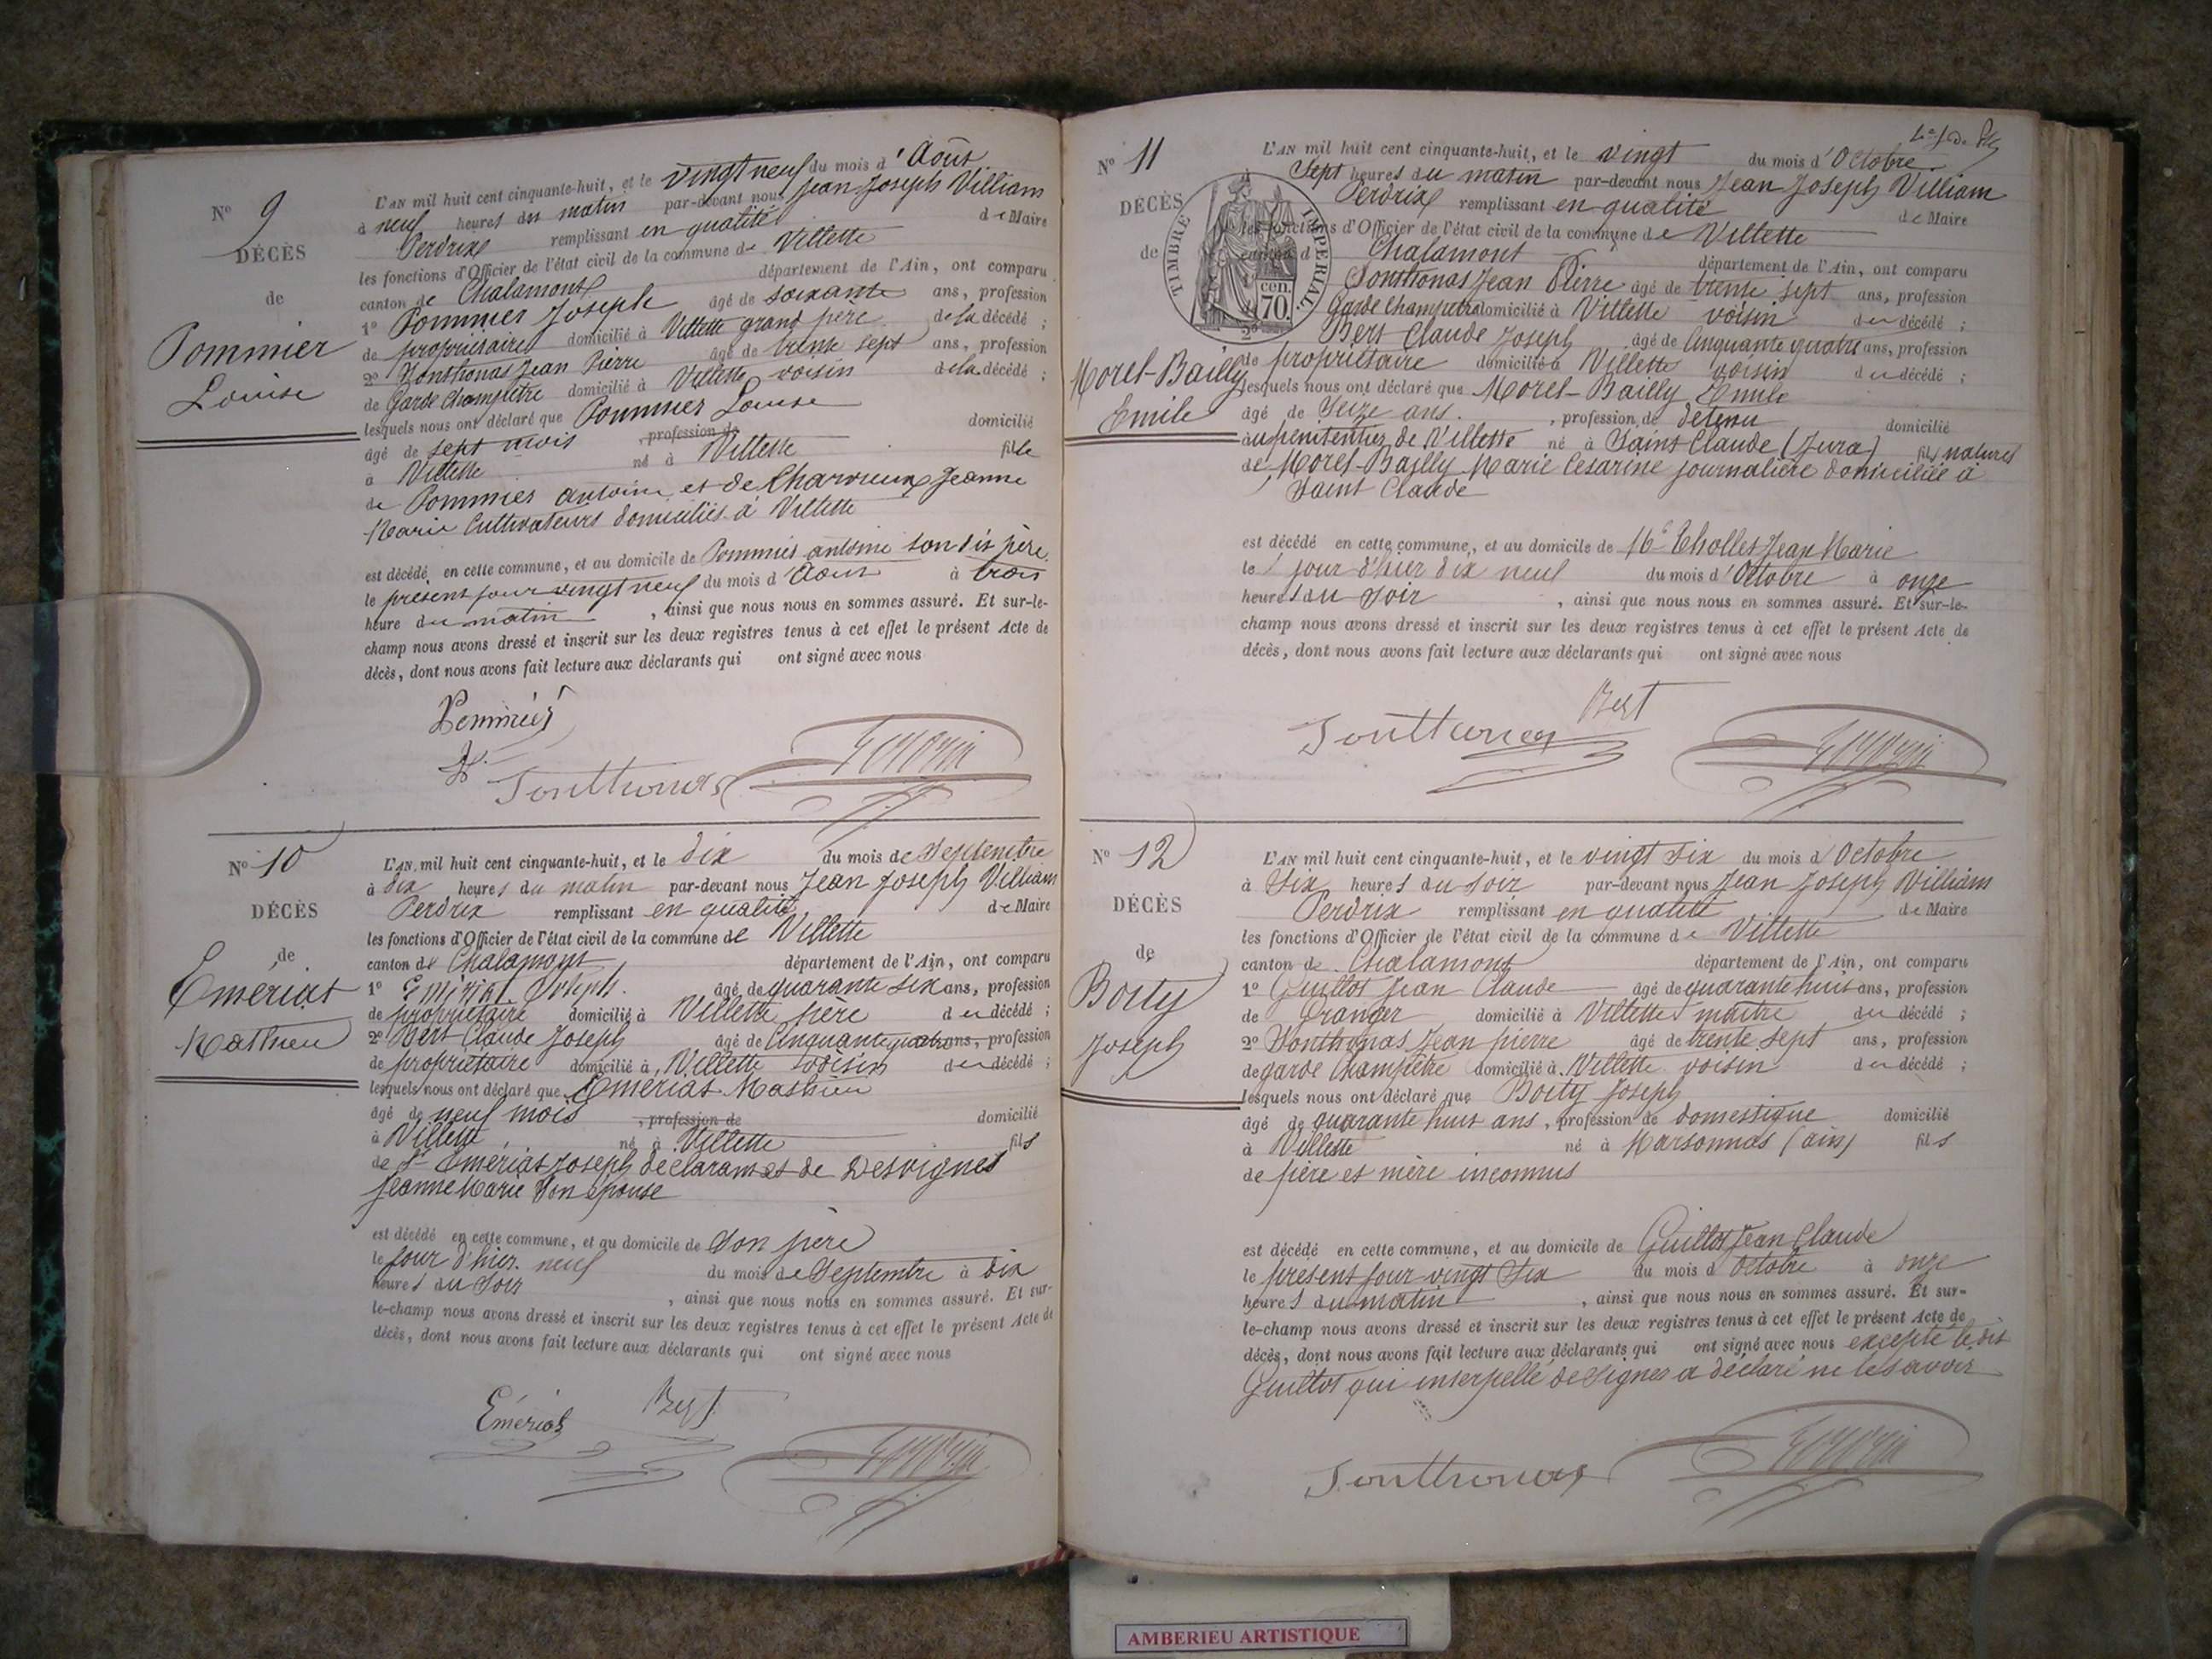 Nº 9
DÉCÈS
de
Pommier
Louise
L'AN mil huit cent cinquante-huit, et le vingt neuf du mois d'Août
à neuf heures du matin par-devant nous Jean Joseph Villiam
Perdrix remplissant en qualité de Maire
les fonctions d'Officier de l'état civil de la commune de Villette
canton de Chalamont département de l'Ain, ont comparu
1º Pommier Joseph âgé de soixante ans, profession
de propriétaire domicilié à Villette grand père de la décédé ;
2º Jean Pierre âgé de trente sept ans, profession
de Garde Champêtre domicilié à Villette voisin de la décédé ;
lesquels nous ont déclaré que Pommier Louise
âgé de sept mois , profession de domicilié
à Villette né à Villette fille
de Pommier antoine et de Jeanne
Marie Cultivateurs domiciliés à Villette
est décédé en cette commune, et au domicile de Pommier antoine son dit père
le présent jour vingt neuf du mois d'Août à trois
heure du matin , ainsi que nous nous en sommes assuré. Et sur-le-
champ nous avons dressé et inscrit sur les deux registres tenus à cet effet le présent Acte de
décès, dont nous avons fait lecture aux déclarants qui ont signé avec nous
Pommier
Nº 10
DÉCÈS
de
Emeriat
Mathieu
L'AN mil huit cent cinquante-huit, et le dix du mois de Septembre
à dix heures du matin par-devant nous Jean Joseph Villiam
Perdrix remplissant en qualité de Maire
les fonctions d'Officier de l'état civil de la commune de Villette
canton de Chalamont département de l'Ain, ont comparu
1º Emériat Joseph âgé de quarante six ans, profession
de propriétaire domicilié à Villette père du décédé ;
2º Bert Claude Joseph âgé de Cinquante quatre ans, profession
de propriétaire domicilié à Villette voisin du décédé ;
lesquels nous ont déclaré que Emeriat Mathieu
âgé de neuf mois , profession de domicilié
à Villette né à Villette fils
de Emeriat Joseph déclarant et de Desvignes
Jeanne Marie son épouse
est décédé en cette commune, et au domicile de Son père
le jour d'hier neuf du mois de Septembre à dix
heures du Soir , ainsi que nous nous en sommes assuré. Et sur-
le-champ nous avons dressé et inscrit sur les deux registres tenus à cet effet le présent Acte de
décès, dont nous avons fait lecture aux déclarants qui ont signé avec nous
Emériat Bert
Nº 11
DÉCÈS
de
Morel-Bailly
Emile
TIMBRE IMPERIAL
70 cen.
L'AN mil huit cent cinquante-huit, et le vingt du mois d'Octobre
Sept heures du matin par-devant nous Jean Joseph Villiam
Perdrix remplissant en qualité de Maire
les fonctions d'Officier de l'état civil de la commune de Villette
canton d Chalamont département de l'Ain, ont comparu
Jean Pierre âgé de trente sept ans, profession
Garde Champêtre domicilié à Villette voisin du décédé ;
Bert Claude Joseph âgé de Cinquante quatre ans, profession
de propriétaire domicilié à Villette voisin du décédé ;
lesquels nous ont déclaré que Morel-Bailly Emile
âgé de Seize ans , profession de détenu domicilié
au pénitentier de Villette né à Saint Claude (Jura) fils naturel
de Morel-Bailly Marie Césarine journalière domiciliée à
Saint Claude
est décédé en cette commune, et au domicile de Jean Marie
le jour d'hier dix neuf du mois d'Octobre à onze
heures du Soir , ainsi que nous nous en sommes assuré. Et sur-le-
champ nous avons dressé et inscrit sur les deux registres tenus à cet effet le présent Acte de
décès, dont nous avons fait lecture aux déclarants qui ont signé avec nous
Bert
Nº 12
DÉCÈS
de
Boity
Joseph
L'AN mil huit cent cinquante-huit, et le vingt Six du mois d'Octobre
à Six heures du Soir par-devant nous Jean Joseph Villiam
Perdrix remplissant en qualité de Maire
les fonctions d'Officier de l'état civil de la commune de Villette
canton de Chalamont département de l'Ain, ont comparu
1º Guillot Jean Claude âgé de quarante huit ans, profession
de Granger domicilié à Villette maître du décédé ;
2º Jean pierre âgé de trente sept ans, profession
de garde Champêtre domicilié à Villette voisin du décédé ;
lesquels nous ont déclaré que Boity Joseph
âgé de quarante huit ans , profession de domestique domicilié
à Villette né à Marsonnas (ain) fils
de père et mère inconnus
est décédé en cette commune, et au domicile de Guillot Jean Claude
le présent jour vingt Six du mois d'Octobre à onze
heures du matin , ainsi que nous nous en sommes assuré. Et sur-
le-champ nous avons dressé et inscrit sur les deux registres tenus à cet effet le présent Acte de
décès, dont nous avons fait lecture aux déclarants qui ont signé avec nous excepté le dit
Guillot qui interpellé de signer a déclaré ne le savoir
AMBERIEU ARTISTIQUE